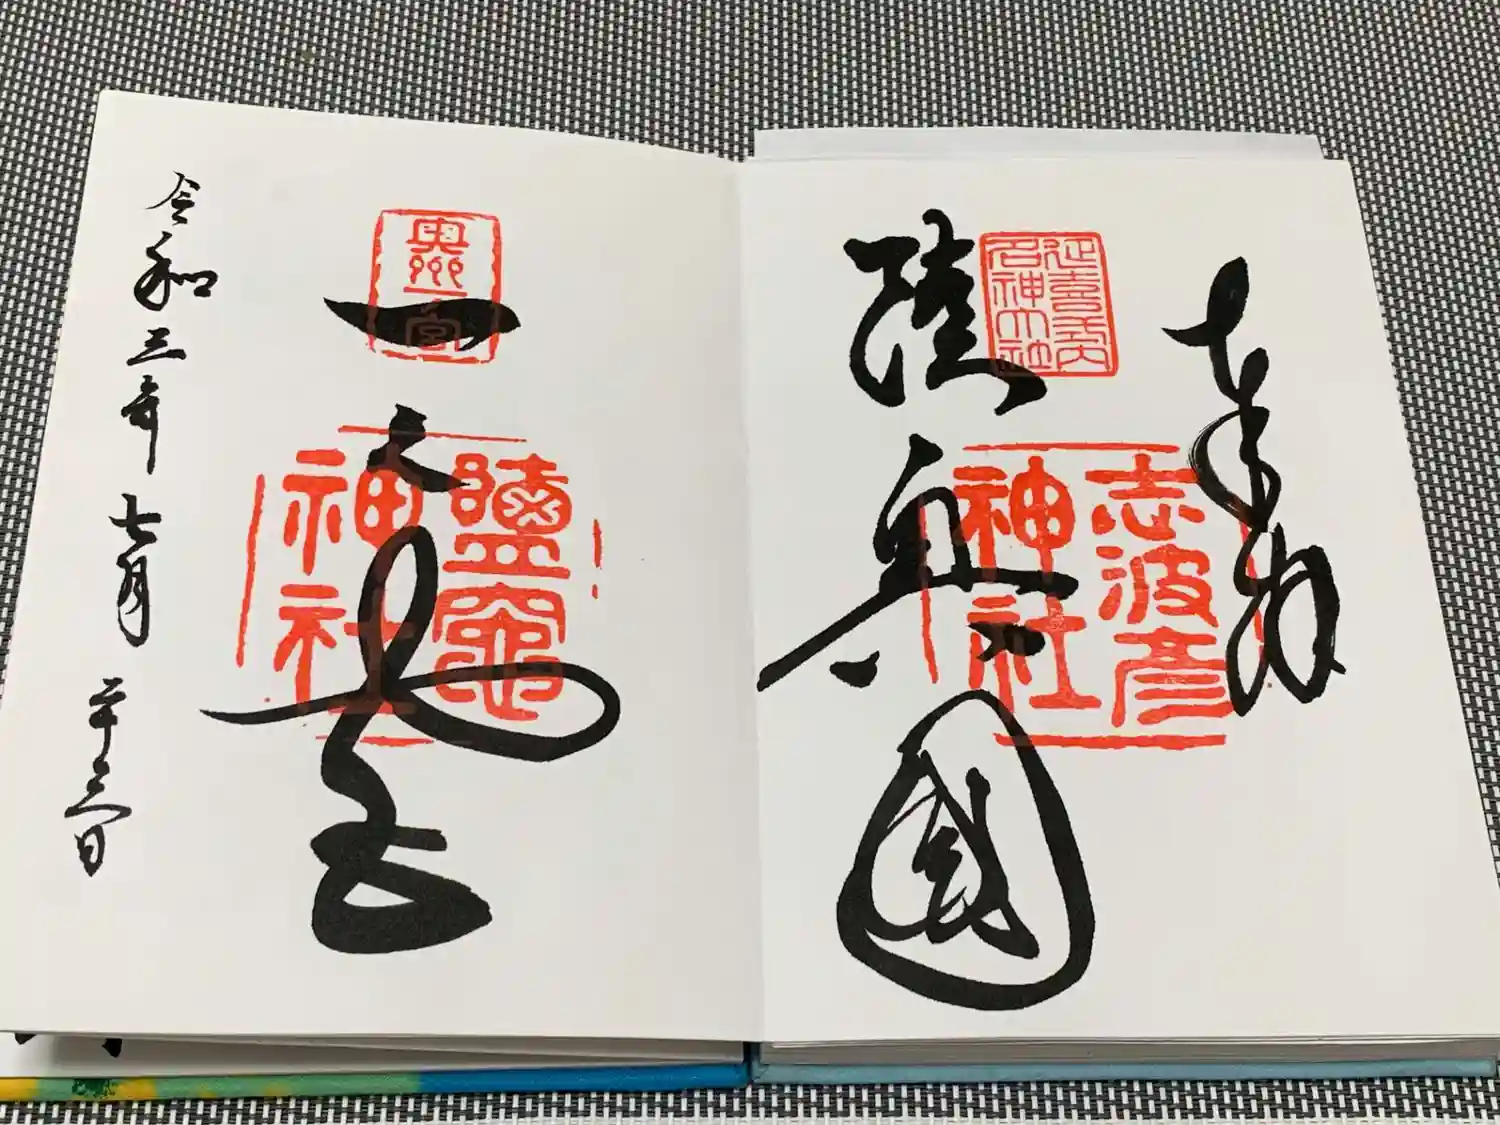 奉拝
延喜式内
名神大社
陸奥國
志波彦
神社
奥州
一宮
一之宮
鹽竈
神社
令和三年七月二十三日